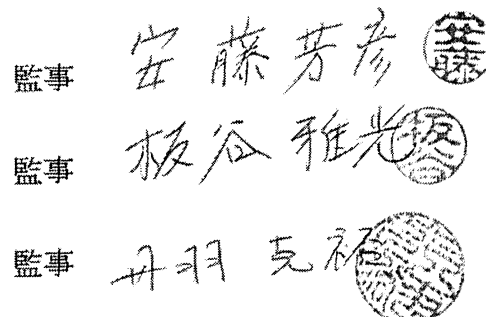 監事 安藤芳彦 安藤
監事 板谷雅光 板谷
監事 丹羽克祐